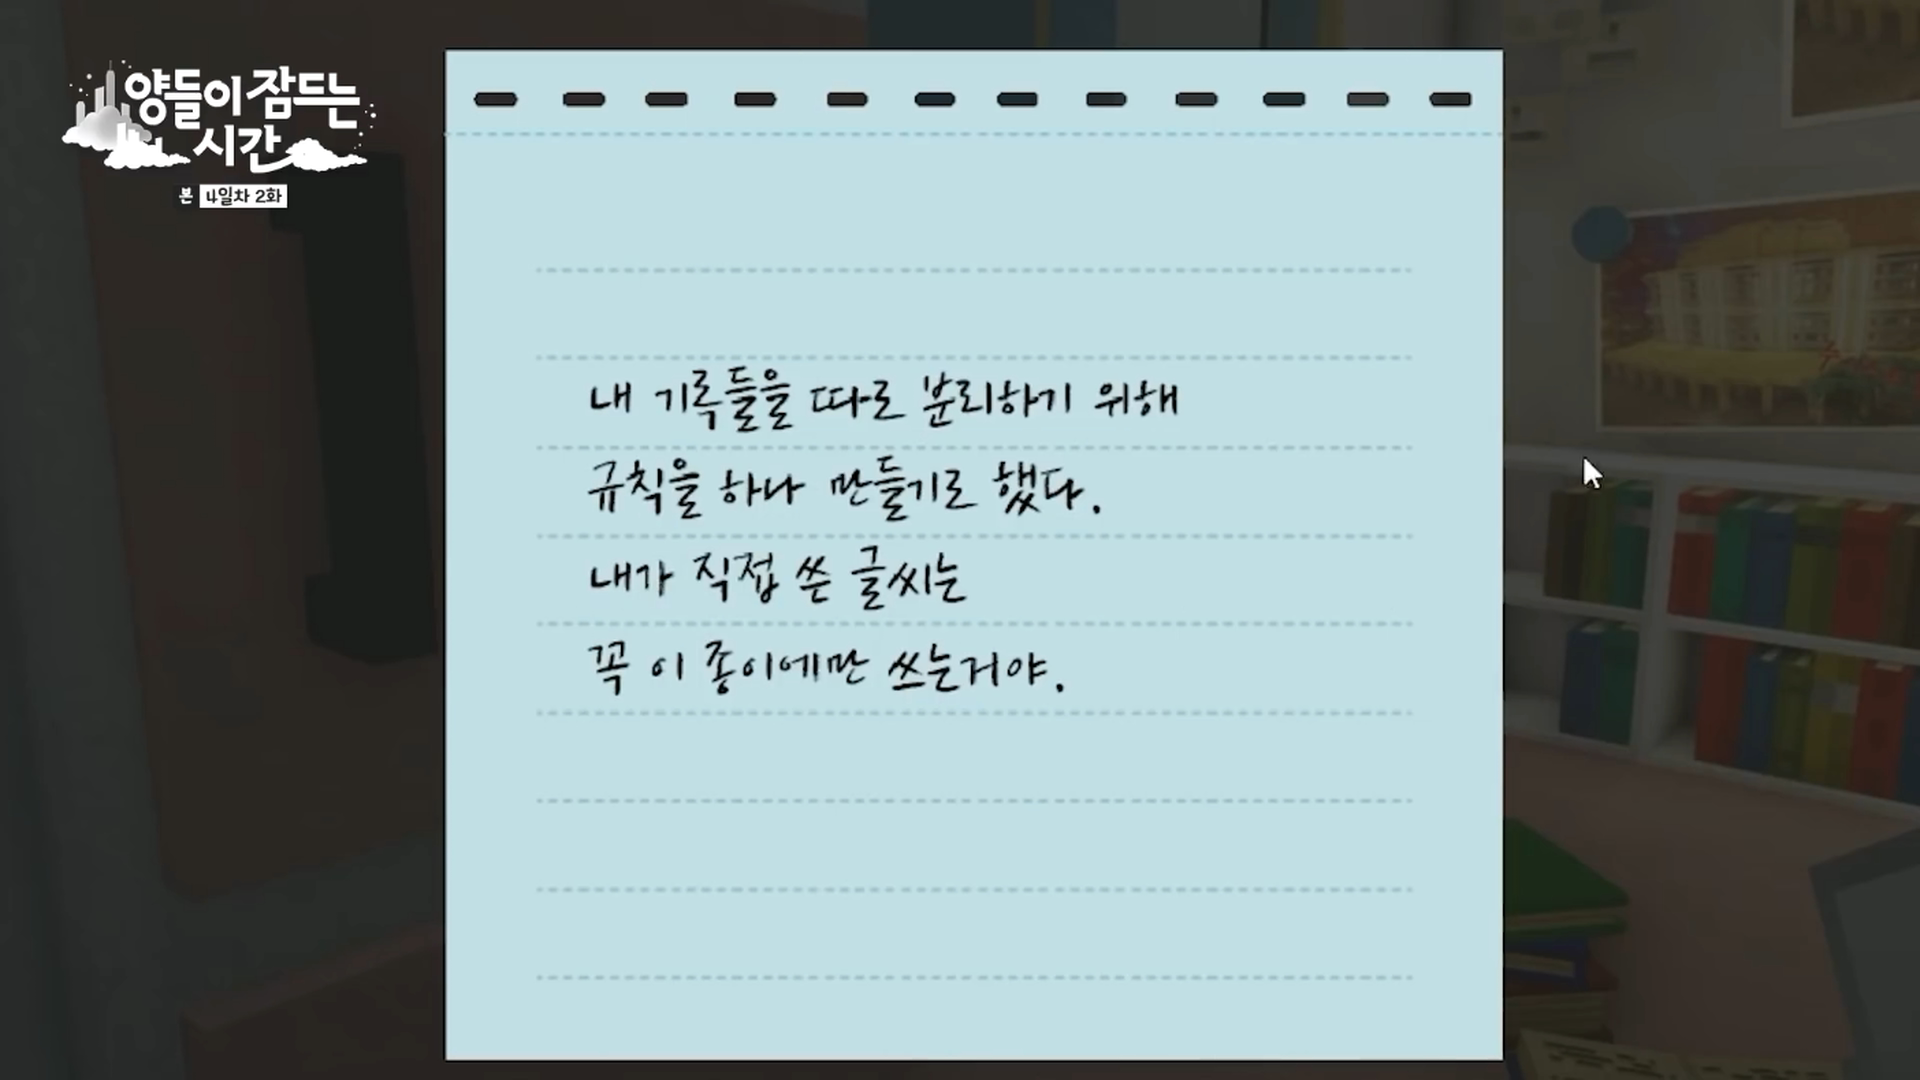 양들이 잠드는
시간
본 4일차 2화
내 기록들을 따로 분리하기 위해
규칙을 하나 만들기로 했다.
내가 직접 쓴 글씨는
꼭 이 종이에만 쓰는거야.